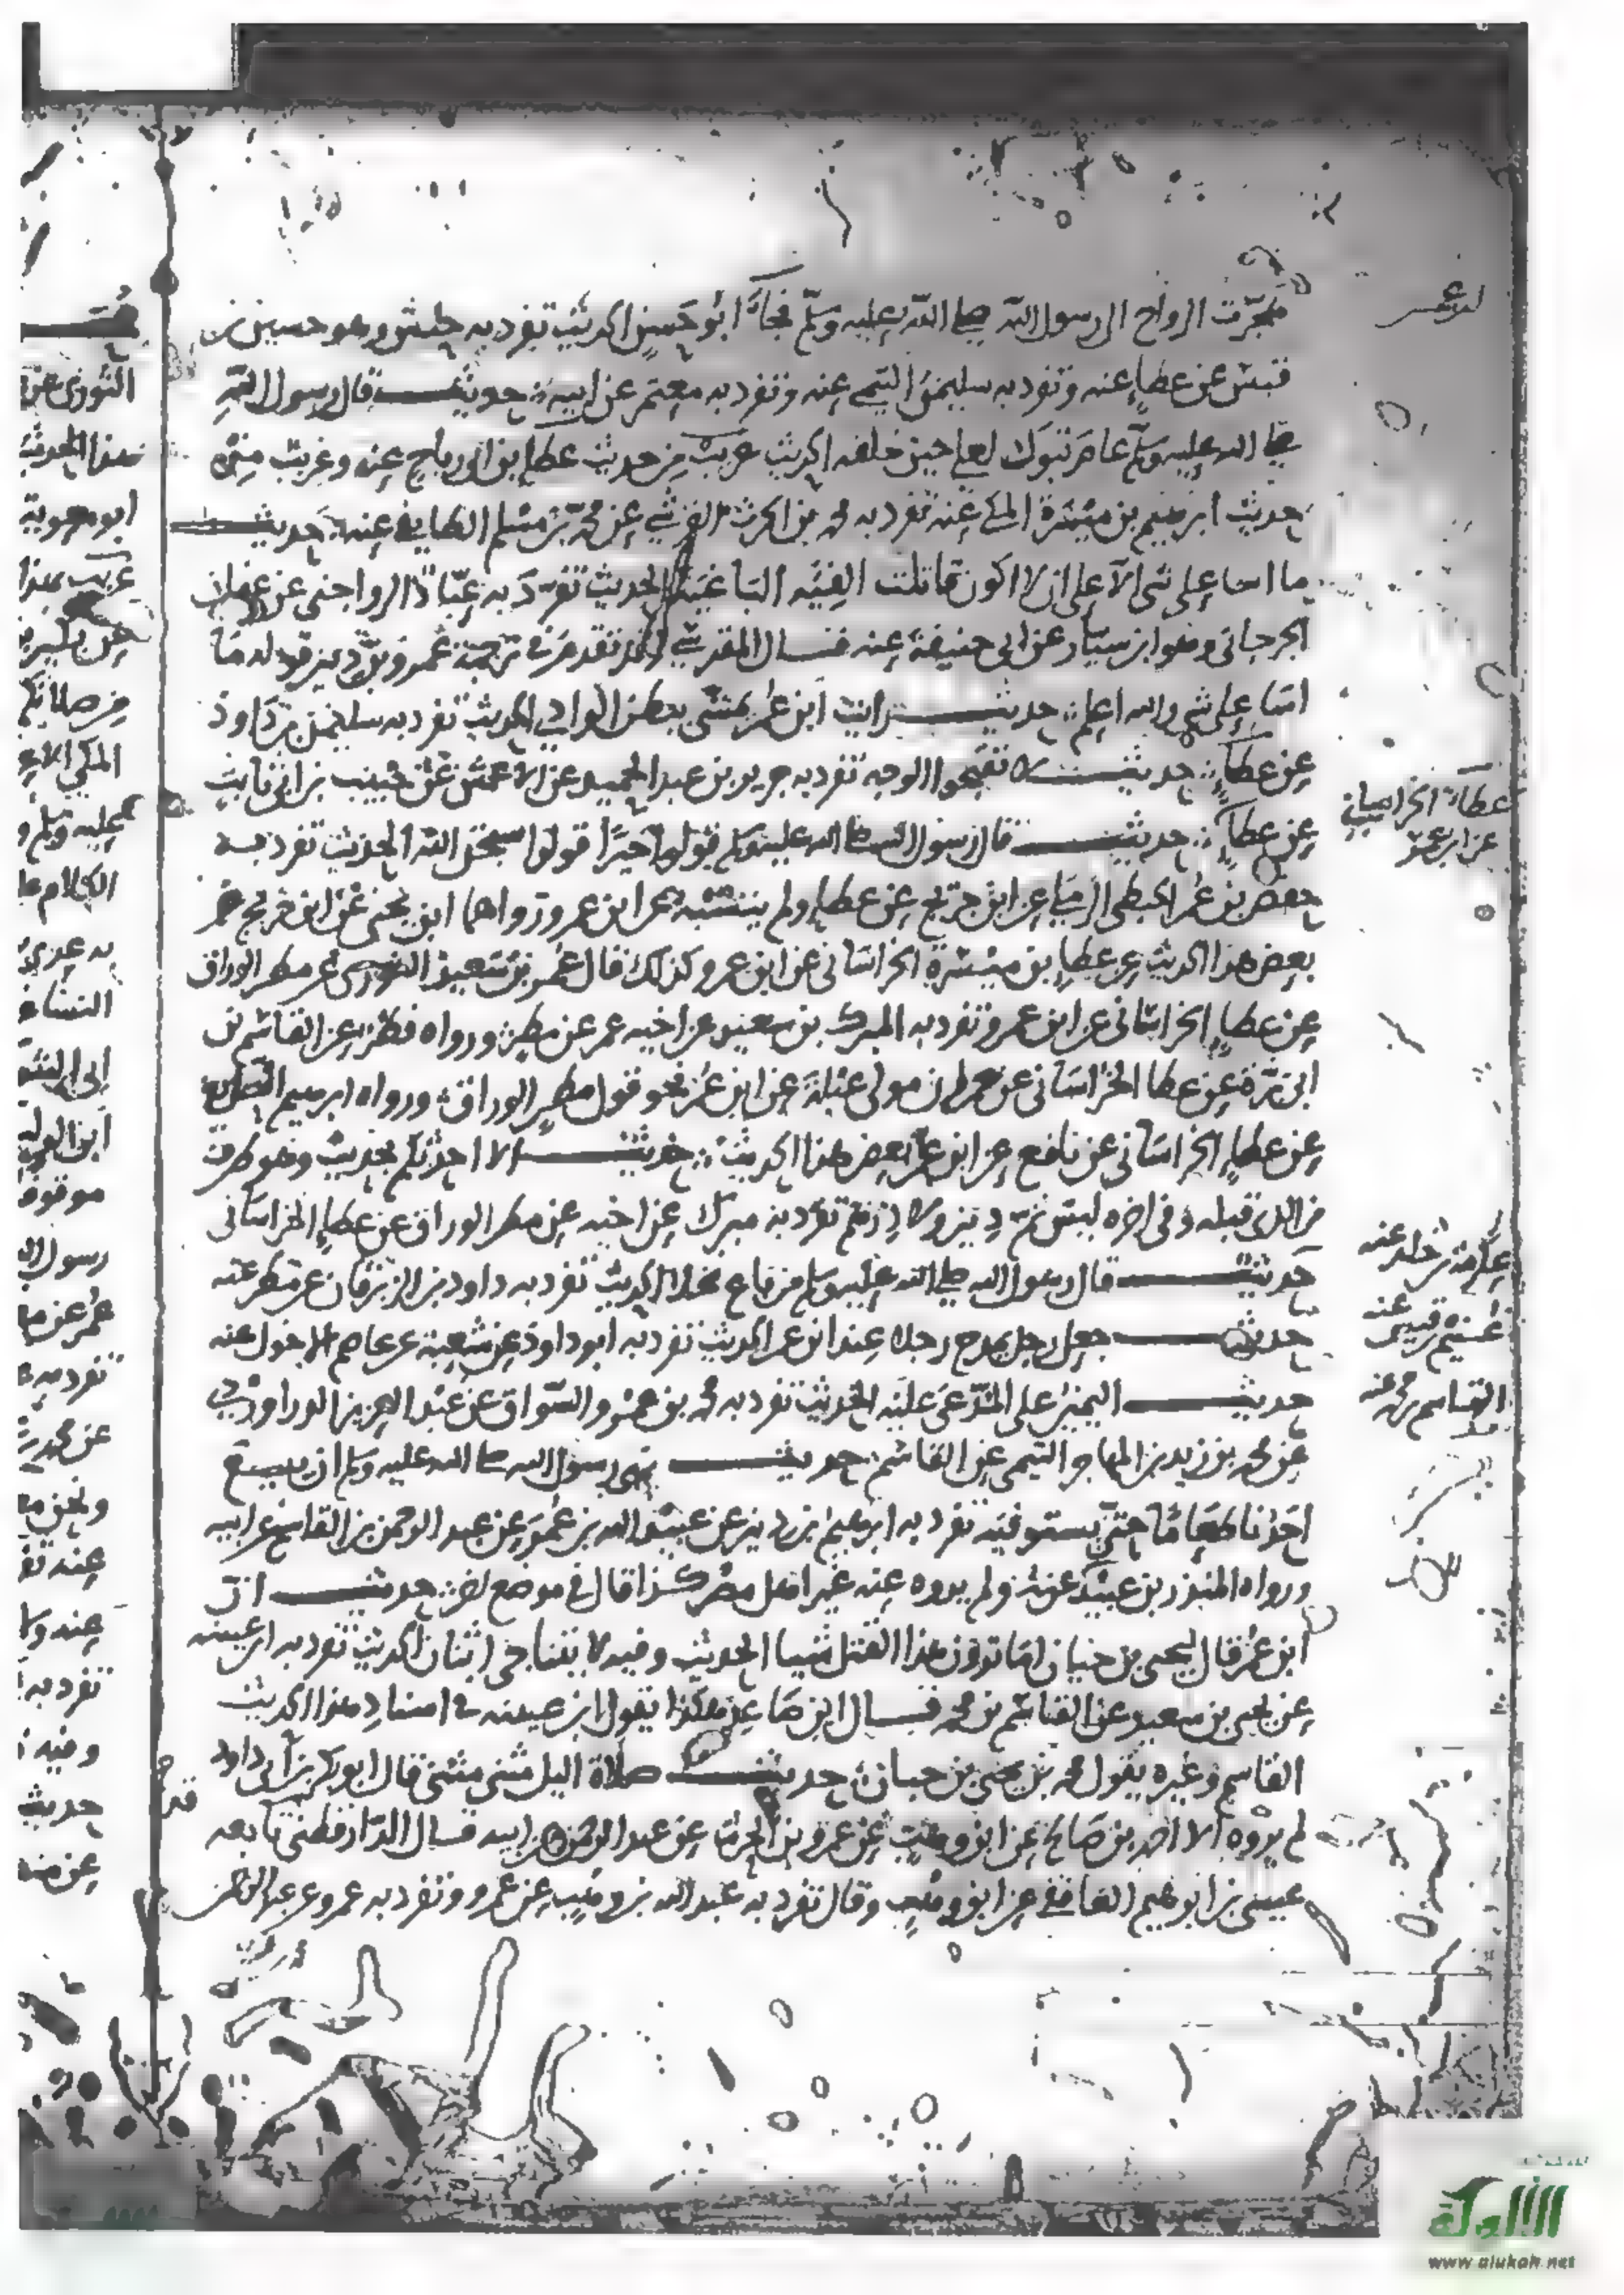 هجرت الرواح الى رسول الله صلى الله عليه وسلم فجاء ابو حسين الحديث تفرد به حنش وهو حسين بن
قيس عن عطاء عنه وتفرد به سليمن التيمي عنه وتفرد به معتمر عن ابيه حديث قال رسول الله
صلى الله عليه وسلم عام تبوك لعلي حين خلفه الحديث غريب من حديث عطاء بن ابي رباح عنه وغريب من
حديث ابرهيم بن ميسرة المكي عنه تفرد به محمد بن الحرث القرشي عن محمد بن مسلم الطايفي عنه حديث
ما اسا على شي الا على ان لا اكون قاتلت الفيه الباغية الحديث تفرد به عباد الرواجني عن عفان
الجرجاني وهو ابن سيار عن ابي حنيفة عنه قال المقدسي وقد تقدم في ترجمة عمرو بن دينر قوله ما
اسا على شي والله اعلم حديث رايت ابن عمر يمشي ببطن الوادي الحديث تفرد به سليمن بن داود
عن عطاء حديث لا تقبحوا الوجه تفرد به جرير بن عبد الحميد عن الاعمش عن حبيب بن ابي ثابت
عن عطاء حديث قال رسول الله صلى الله عليه وسلم قولوا خيرا قولوا سبحن الله الحديث تفرد به
حفص بن عمر الحبطي الرملي عن ابن جريج عن عطاء ولم ينسبه عن ابن عمر ورواهما ابن يحيى عن ابن جريج
بعض هذا الحديث عن عطاء بن ميسرة الخراساني عن ابن عمر وكذلك قال عمر بن سعيد الثوري عن مطر الوراق
عن عطاء الخراساني عن ابن عمر وتفرد به المبرك بن سعيد عن اخيه عمر عن مطر ورواه فطر عن القاسم بن
ابي بزة عن عطا الخراساني عن حمران مولى عبلة عن ابن عمر نحو قول مطر الوراق ورواه ابرهيم الصايغ
عن عطاء الخراساني عن نافع عن ابن عمر بعض هذا الحديث حديث الا احدثكم بحديث وهو طرف
من الذي قبله وفي اخره ليس ثم دينر ولا درهم تفرد به مبرك عن اخيه عن مطر الوراق عن عطاء الخراساني
حديث قال رسول الله صلى الله عليه وسلم من باع نخلا الحديث تفرد به داود بن الزبرقان عن مطر عنه
حديث جعل رجل يمدح رجلا عند ابن عمر الحديث تفرد به ابو داود عن شعبة عن عاصم الاحول عنه
حديث اليمين على المدعى عليه الحديث تفرد به محمد بن عمرو السواق عن عبد العزيز الدراوردي
عن محمد بن زيد بن المهاجر التيمي عن القاسم حديث نهى رسول الله صلى الله عليه وسلم ان يبيع
احدنا طعاما حتى يستوفيه تفرد به ابرهيم بن رزين عن عبيد الله بن عمر عن عبد الرحمن بن القاسم عن ابيه
ورواه المنذر بن عبيد عنه ولم يروه عنه غير اهل مصر كذا قال في موضع اخر حديث ان
ابن عمر قال ليحيى بن حبان اما ترون هذا القتل شيا الحديث وفيه لا يتناجى اثنان الحديث تفرد به ابن عيينه
عن يحيى بن سعيد عن القاسم بن محمد قال ابن صاعد هكذا يقول ابن عيينه في اسناد هذا الحديث
القاسم وغيره يقول محمد بن يحيى بن حبان حديث صلاة اليل مثنى مثنى قال ابو بكر بن ابي داود
لم يروه الا احمد بن صالح عن ابن وهب عن عمرو بن الحرث عن عبد الرحمن عن ابيه قال الدارقطني تابعه
عيسى بن ابرهيم الغافقي عن ابن وهب وقال تفرد به عبد الله بن وهب عن عمرو وتفرد به عمرو عن عبد الرحمن
عطاء الخراساني
عن ابن عمر
عكرمة بن خلد عنه
غنيم بن قيس عنه
القاسم بن محمد عنه
الثوري عن
هذا الحديث
ابو معوية
غريب بهذا
المكي الا
عليه وسلم و
الكلام
النسا
موقوف
رسول ال
عمر عن
تفرد به
عن محمد
عند
عنه ولا
تفرد به
وفيه
حديث
عن
الألوكة
www.alukah.net